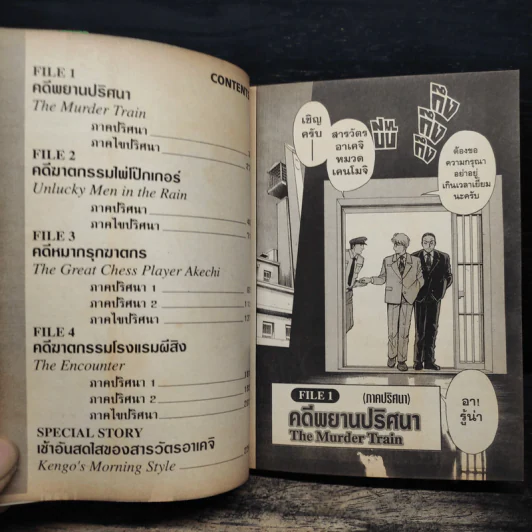 CONTENTS
FILE 1
คดีพยานปริศนา
The Murder Train
ภาคปริศนา
ภาคไขปริศนา
FILE 2
คดีฆาตกรรมไพ่โป๊กเกอร์
Unlucky Men in the Rain
ภาคปริศนา
ภาคไขปริศนา
FILE 3
คดีหมากรุกฆาตกร
The Great Chess Player Akechi
ภาคปริศนา 1
ภาคปริศนา 2
ภาคไขปริศนา
FILE 4
คดีฆาตกรรมโรงแรมผีสิง
The Encounter
ภาคปริศนา 1
ภาคปริศนา 2
ภาคไขปริศนา
SPECIAL STORY
เช้าอันสดใสของสารวัตรอาเคจิ
Kengo's Morning Style
เชิญ
ครับ
สารวัตร
อาเคจิ
หมวด
เคนโมจิ
กึง
กึง
กึง
ต้องขอ
ความกรุณา
อย่าอยู่
เกินเวลาเยี่ยม
นะครับ
FILE 1
(ภาคปริศนา)
คดีพยานปริศนา
The Murder Train
อา!
รู้น่า